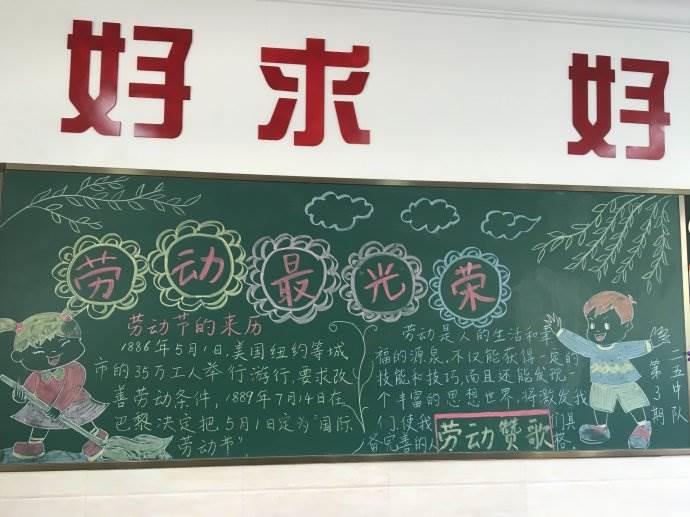 好求 好
劳动最光荣
劳动节的来历
1886年5月1日,美国纽约等城
市的35万工人举行游行,要求改
善劳动条件,1889年7月14日在
巴黎决定把5月1日定为"国际
劳动节"
劳动是人的生活和幸
福的源泉,不仅能获得一定的
技能和技巧,而且还能发现一
个丰富的思想世界,将激发我
们,使我 们具
备完善的人 格
劳动赞歌
二五中队
第3期